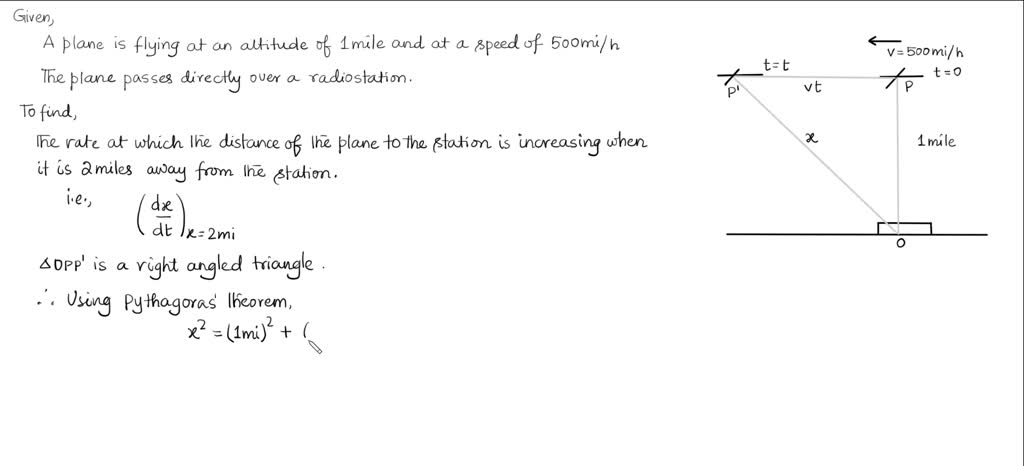 Given,
A plane is flying at an altitude of 1mile and at a speed of 500mi/h
The plane passes directly over a radiostation.
To find,
The rate at which the distance of the plane to the station is increasing when
it is 2miles away from the station.
i.e., (dx/dt)x=2mi
△OPP' is a right angled triangle.
∴ Using Pythagoras' theorem,
x² = (1mi)² + (
v=500mi/h
t=t
t=0
P'
vt
P
x
1mile
O